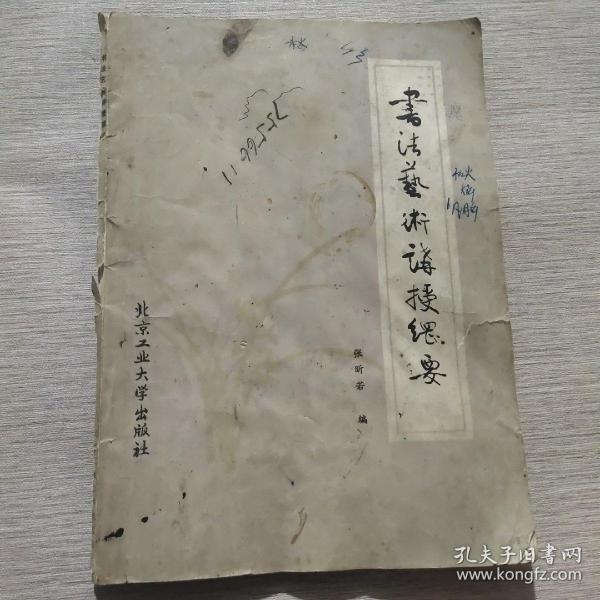 書法藝術講授綱要
张昕若 编
北京工业大学出版社
林
孔夫子旧书网
www.kongfz.com